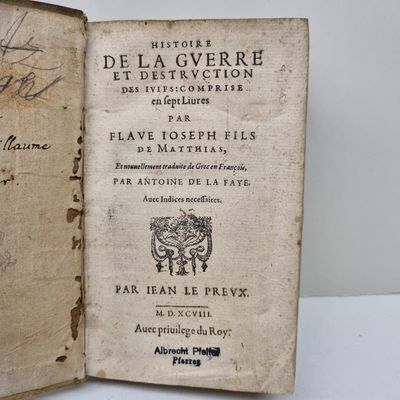 illaume
HISTOIRE
DE LA GVERRE
ET DESTRVCTION
DES IVIFS: COMPRISE
en sept Liures
PAR
FLAVE IOSEPH FILS
DE MATTHIAS,
Et nouuellement traduite de Grec en François,
PAR ANTOINE DE LA FAYE.
Auec Indices necessaires.
PAR IEAN LE PREVX.
M. D. XCVIII.
Auec priuilege du Roy.
Albrecht
Pfarrer